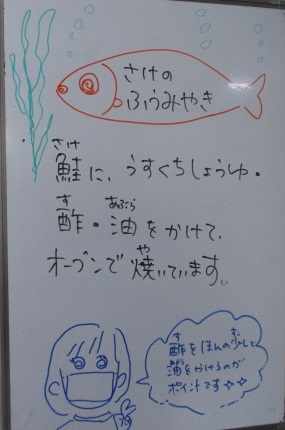 さけの
ふうみやき
さけ
鮭に、うすくちしょうゆ・
す あぶら
酢・油をかけて、
や
オーブンで焼いています。
す すこ
酢をほんの少しと
油をかけるのが
ポイントです☆☆